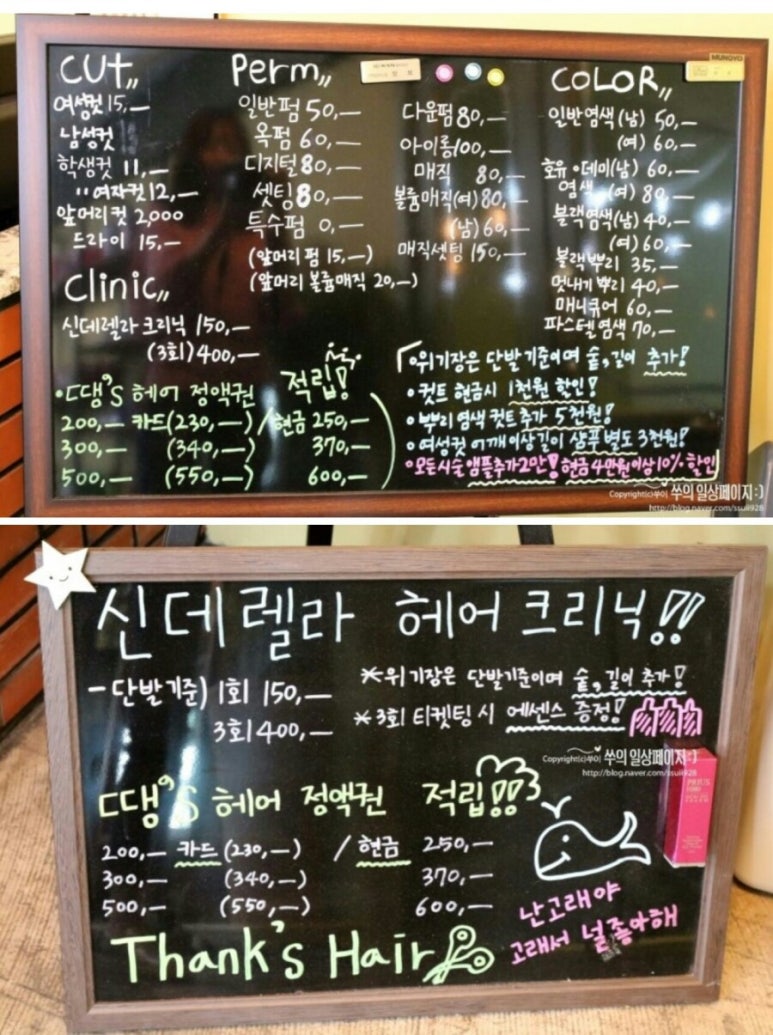 CUT,,
여성컷 15,—
남성컷
학생컷 11,—
〃 여자컷 12,—
앞머리컷 2,000
드라이 15,—
Perm,,
일반펌 50,—
옥펌 60,—
디지털 80,—
셋팅 80,—
특수펌 0,—
(앞머리 펌 15,—)
(앞머리 볼륨매직 20,—)
다운펌 80,—
아이롱 100,—
매직 80,—
볼륨매직(여) 80,—
(남) 60,—
매직셋팅 150,—
MUNGYO
COLOR,,
일반염색(남) 50,—
(여) 60,—
호유·데미(남) 60,—
염색 (여) 80,—
블랙염색(남) 40,—
(여) 60,—
블랙뿌리 35,—
멋내기뿌리 40,—
매니큐어 60,—
파스텔염색 70,—
Clinic,,
신데렐라 크리닉 150,—
(3회) 400,—
·땡's 헤어 정액권 적립!
200,— 카드(230,—) / 현금 250,—
300,— (340,—) 370,—
500,— (550,—) 600,—
·위기장은 단발기준이며 숱,길이 추가!
·컷트 현금시 1천원 할인!
·뿌리염색 컷트추가 5천원!
·여성컷 어깨이상길이 샴푸 별도 3천원!
·모든시술 앰플추가 2만! 현금 4만원이상 10% 할인
Copyright(c)쑤이 쑤의 일상페이지 :)
http://blog.naver.com/ssuii928
신데렐라 헤어 크리닉!!
-단발기준) 1회 150,—
3회 400,—
*위기장은 단발기준이며 숱,길이 추가!
*3회 티켓팅 시 에센스 증정!
Copyright(c)쑤이 쑤의 일상페이지 :)
http://blog.naver.com/ssuii928
땡's 헤어 정액권 적립!!
200,— 카드 (230,—) / 현금 250,—
300,— (340,—) 370,—
500,— (550,—) 600,—
난고래야
고래서 널좋아해
Thank's Hair